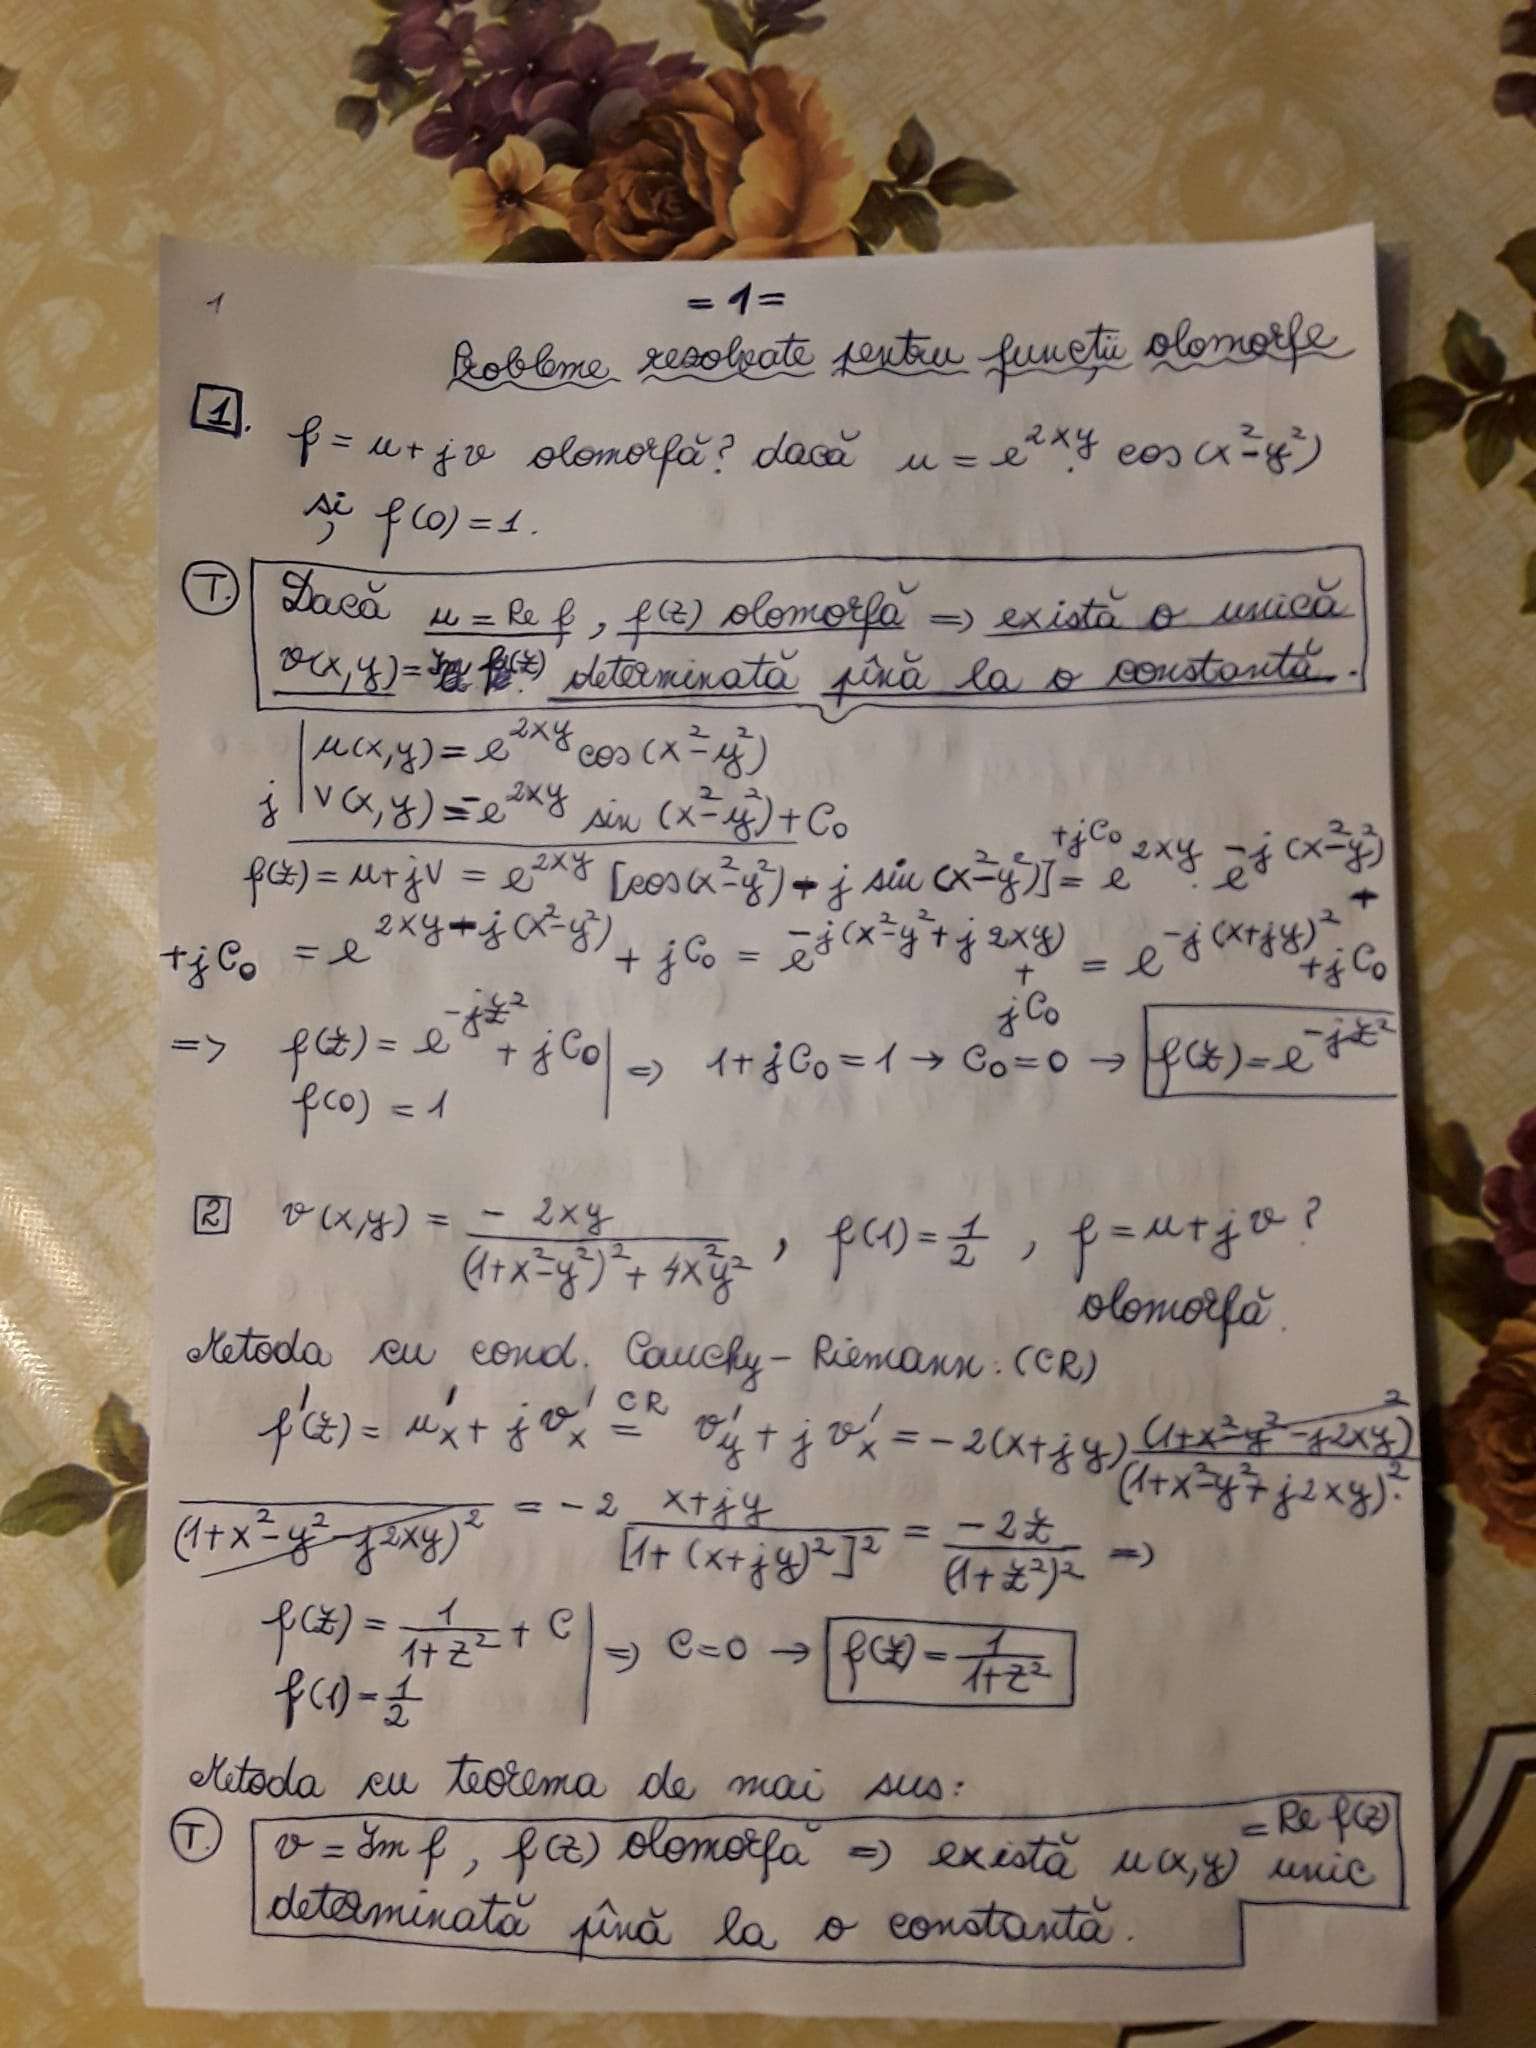 1
= 1 =
Probleme rezolvate pentru funcții olomorfe
1. f = u + jv olomorfă? dacă u = e^{2xy} · cos(x²-y²)
și f(0) = 1.
T. Dacă u = Re f, f(z) olomorfă => există o unică
v(x,y) = Im f(z) determinată pînă la o constantă.
u(x,y) = e^{2xy} cos(x²-y²)
j | v(x,y) = -e^{2xy} sin(x²-y²) + C₀
f(z) = u + jv = e^{2xy} [cos(x²-y²) - j sin(x²-y²)] + jC₀ = e^{2xy} · e^{-j(x²-y²)} +
+ jC₀ = e^{2xy - j(x²-y²)} + jC₀ = e^{-j(x²-y²+j2xy)} + jC₀ = e^{-j(x+jy)²} + jC₀
=> f(z) = e^{-jz²} + jC₀ | => 1 + jC₀ = 1 → C₀ = 0 → f(z) = e^{-jz²}
f(0) = 1
2 v(x,y) = \frac{-2xy}{(1+x²-y²)² + 4x²y²}, f(1) = \frac{1}{2}, f = u + jv?
olomorfă.
Metoda cu cond. Cauchy-Riemann: (CR)
f'(z) = u'ₓ + jv'ₓ \overset{CR}{=} v'_y + jv'ₓ = -2(x+jy) \frac{(1+x²-y²-j2xy)²}{(1+x²-y²+j2xy)² ·
\overline{(1+x²-y²-j2xy)²}} = -2 \frac{x+jy}{[1+(x+jy)²]²} = \frac{-2z}{(1+z²)²} =>
f(z) = \frac{1}{1+z²} + C | => C = 0 → f(z) = \frac{1}{1+z²}
f(1) = \frac{1}{2}
Metoda cu teorema de mai sus:
T. v = Im f, f(z) olomorfă => există u(x,y) = Re f(z) unic
determinată pînă la o constantă.